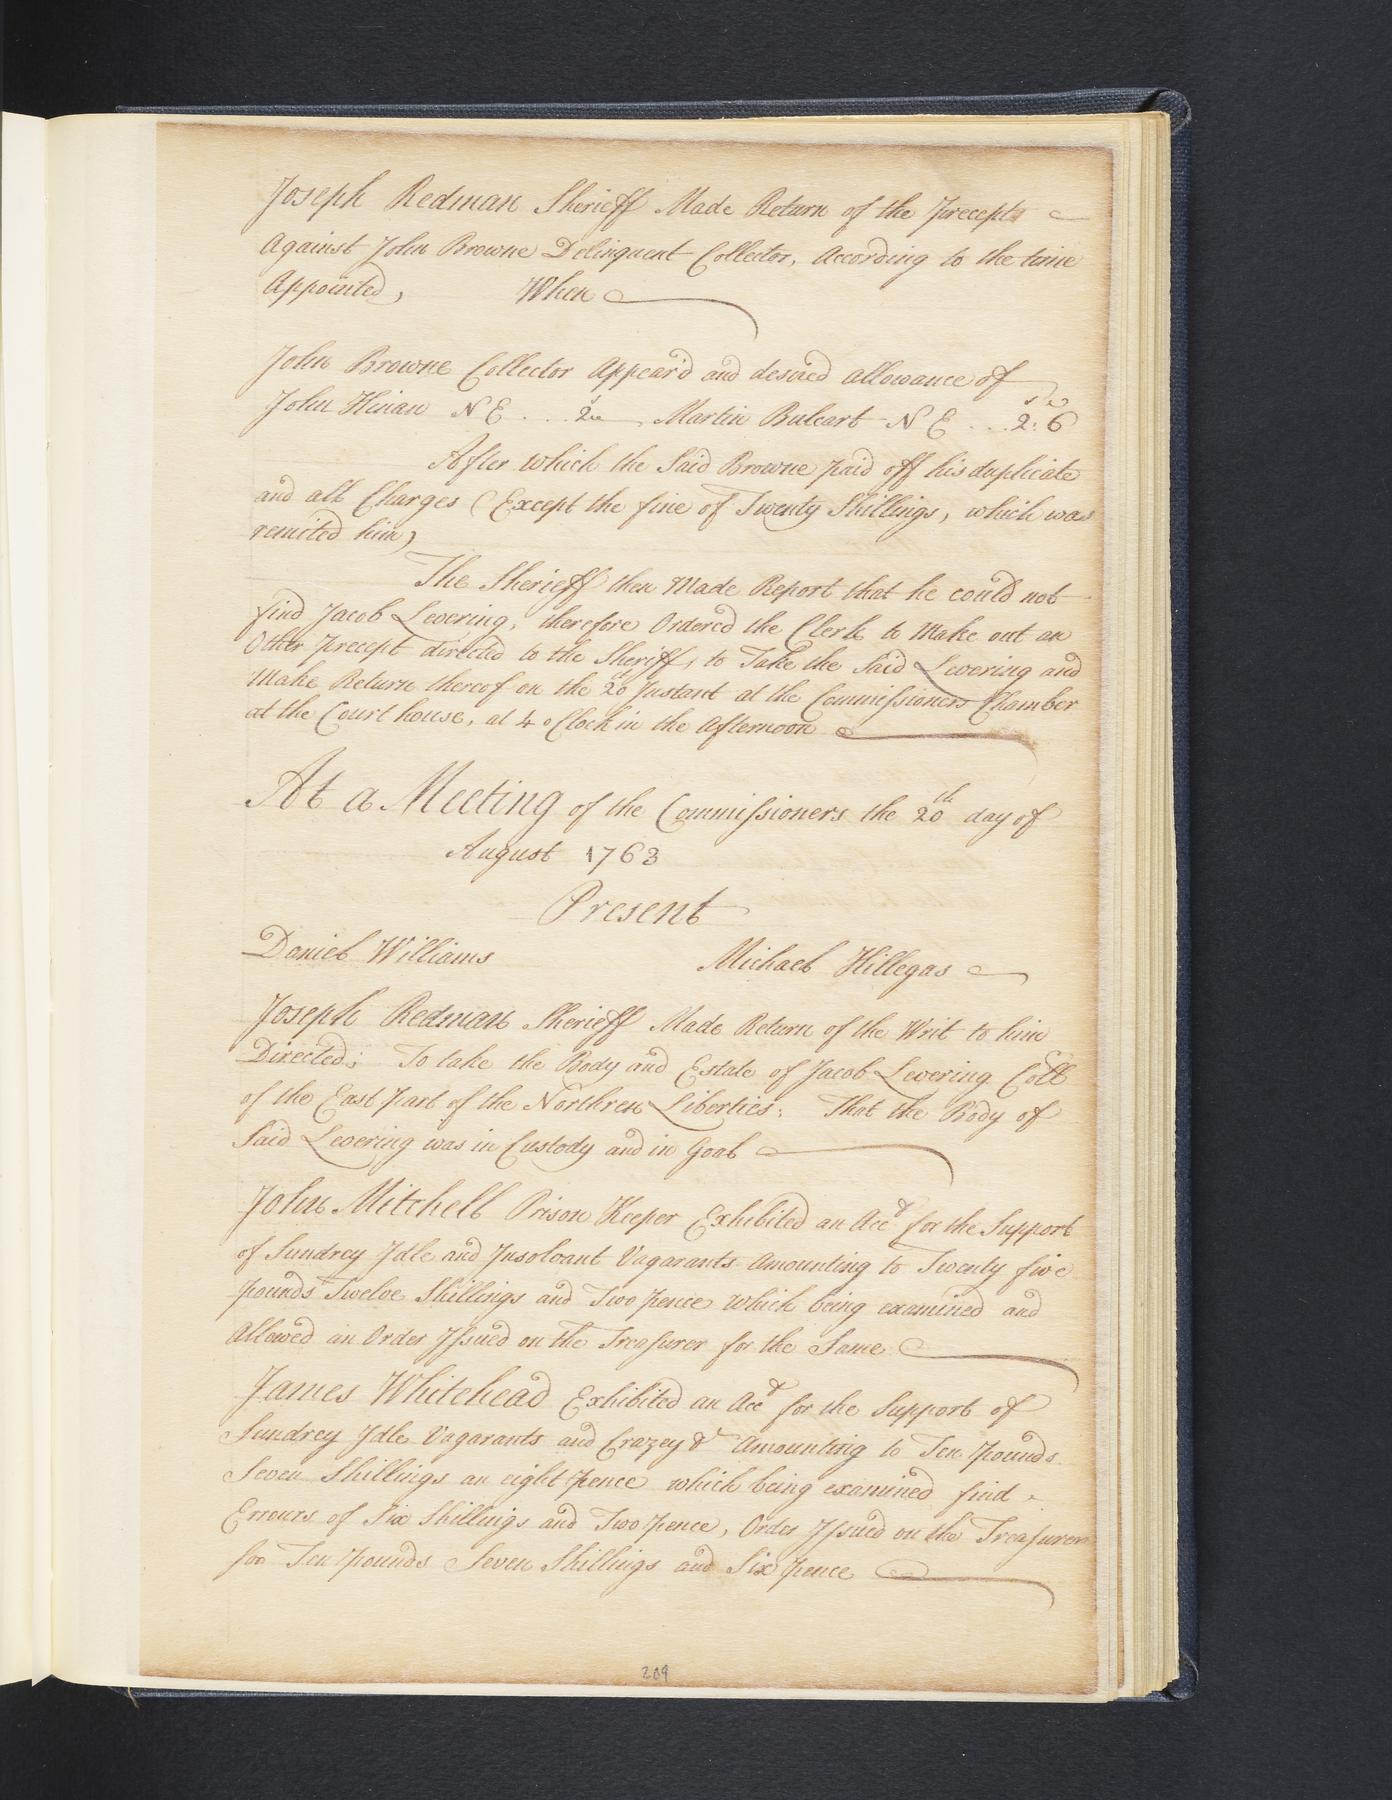 Joseph Redman Sherieff Made Return of the precepts
Against John Browne Delinquent Collector, According to the time
Appointed, When
John Browne Collector Appear'd and desired allowance of
John Hinan N E ... 2 Martin Bulcart N E ... 2: 6
After which the Said Browne paid off his duplicate
and all Charges (Except the fine of Twenty Shillings, which was
remited him)
The Sherieff then Made Report that he could not
find Jacob Levering, therefore Ordered the Clerk to Make out an
Other precept directed to the Sheriff, to Take the Said Levering and
Make Return thereof on the 20th Instant at the Commissioners Chamber
at the Court house, at 4 oClock in the Afternoon
At a Meeting of the Commissioners the 20th day of
August 1763
Present
Daniel Williams Michael Hillegas
Joseph Redman Sherieff Made Return of the Writ to him
Directed; To take the Body and Estate of Jacob Levering Coll
of the East Part of the Northren Liberties; That the Body of
Said Levering was in Custody and in Goal
John Mitchell Prison Keeper Exhibited an Acct for the Support
of Sundrey Idle and Insolvant Vagarants Amounting to Twenty five
pounds Twelve Shillings and Two pence which being examined and
Allowed an Order Issued on the Treasurer for the Same
James Whitehead Exhibited an Acct for the Support of
Sundrey Idle Vagarants and Crazey &c Amounting to Ten pounds
Seven Shillings an eight pence which being examined find
Errours of Six Shillings and Two pence, Order Issued on the Treasurer
for Ten pounds Seven Shillings and Six pence
209